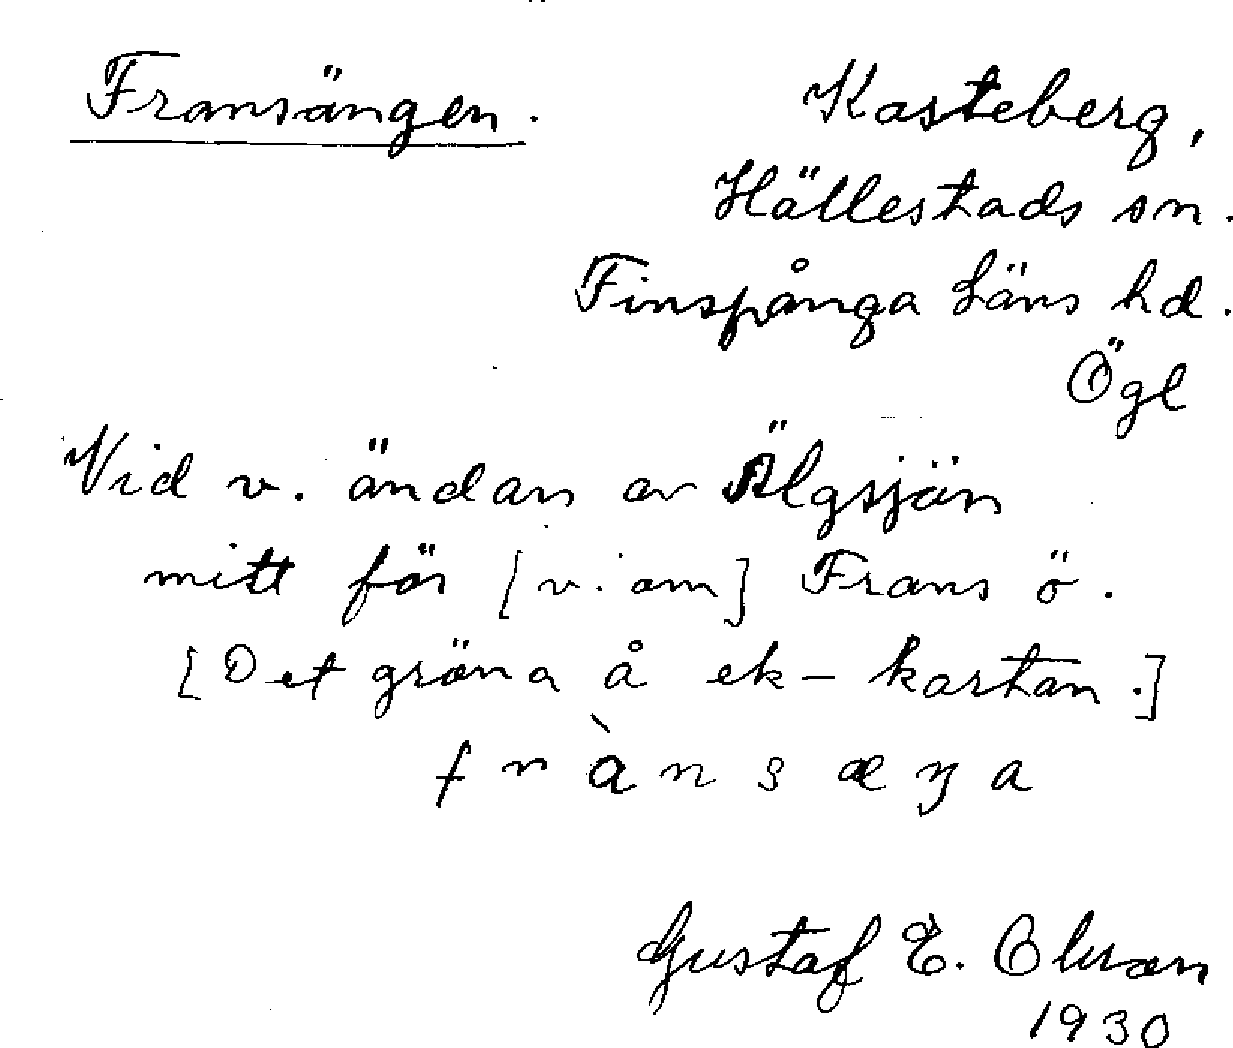 Fransängen. Kasteberg,
Hällestads sn.
Finspånga läns hd.
Ögl
Vid v. ändan av Älgsjön
mitt för [v. om] Frans ö.
[Det gröna å ek-kartan.]
frànsæŋa
Gustaf E. Olsson
1930